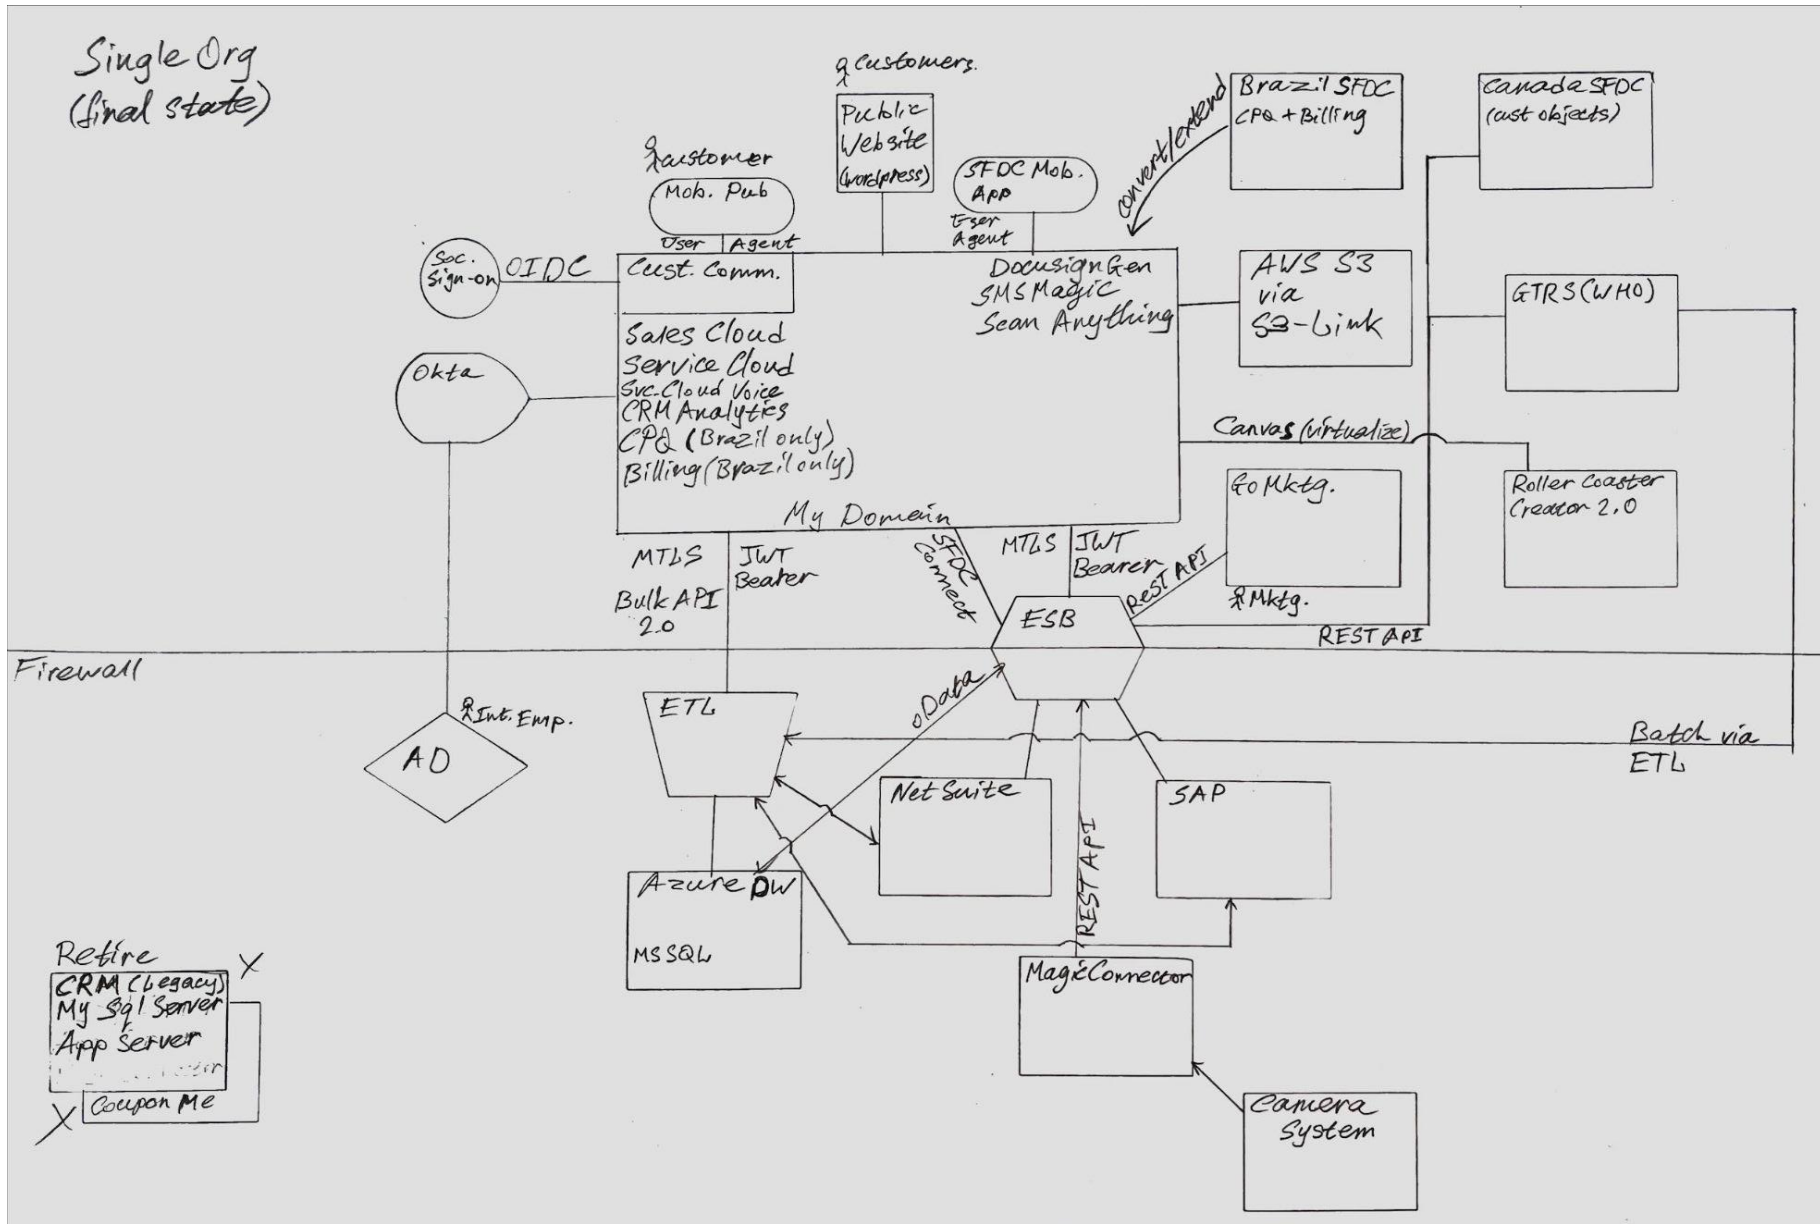 Single Org
(final state)
Customers.
Public
Website
(wordpress)
customer
Mob. Pub
User Agent
SFDC Mob.
App
User
Agent
convert/extend
Brazil SFDC
CPQ + Billing
Canada SFDC
(cust objects)
Soc.
Sign-on
OIDC
Cust. Comm.
Docusign Gen
SMS Magic
Scan Anything
AWS S3
via
S3-Link
GTRS (WHO)
Okta
Sales Cloud
Service Cloud
Svc. Cloud Voice
CRM Analytics
CPQ (Brazil only)
Billing (Brazil only)
My Domain
Canvas (virtualize)
Go Mktg.
Mktg.
Roller Coaster
Creator 2.0
MTLS
JWT
Bearer
Bulk API
2.0
SFDC
Connect
MTLS
JWT
Bearer
REST API
ESB
REST API
Firewall
Int. Emp.
AD
ETL
oData
Batch via
ETL
NetSuite
SAP
REST API
Azure DW
MSSQL
MagicConnector
Camera
System
Retire
X
CRM (Legacy)
My Sql Server
App Server
X
Coupon Me